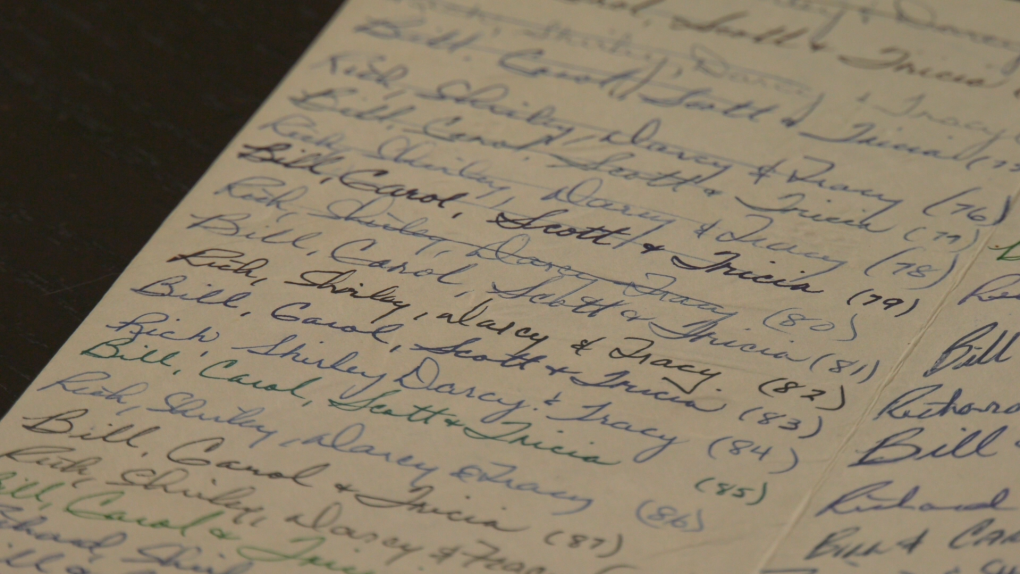 Scott & Tricia
Bill, Carol, Scott & Tricia
Rich, Shirley, Darcy & Tracy (76)
Bill, Carol, Scott & Tricia (77)
Rich, Shirley, Darcy & Tracy (78)
Bill, Carol, Scott & Tricia (79)
Rich, Shirley, Darcy & Tracy (80)
Bill, Carol, Scott & Tricia (81)
Rich, Shirley, Darcy & Tracy. (82)
Bill, Carol, Scott & Tricia (83)
Rich, Shirley Darcy & Tracy (84)
Bill, Carol, Scott & Tricia (85)
Rich, Shirley, Darcy & Tracy (86)
Bill, Carol & Tricia (87)
Rich, Shirley, Darcy & Tracy
Bill, Carol &
Bill
Richard
Bill
Richard
Bill &